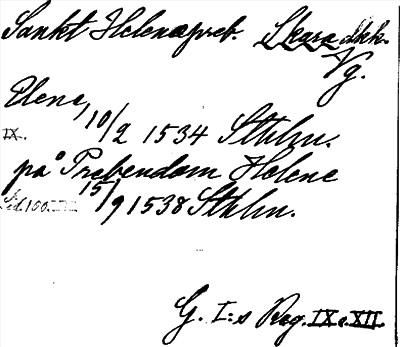 Sankt Helenapreb. Skara dkk.
Vg.
Elene,
10/2 1534 Sthlm.
IX.
på Prebendam Helene
15/9 1538 Sthlm.
Sid. 100.
G. I:s Reg. IX o. XII.